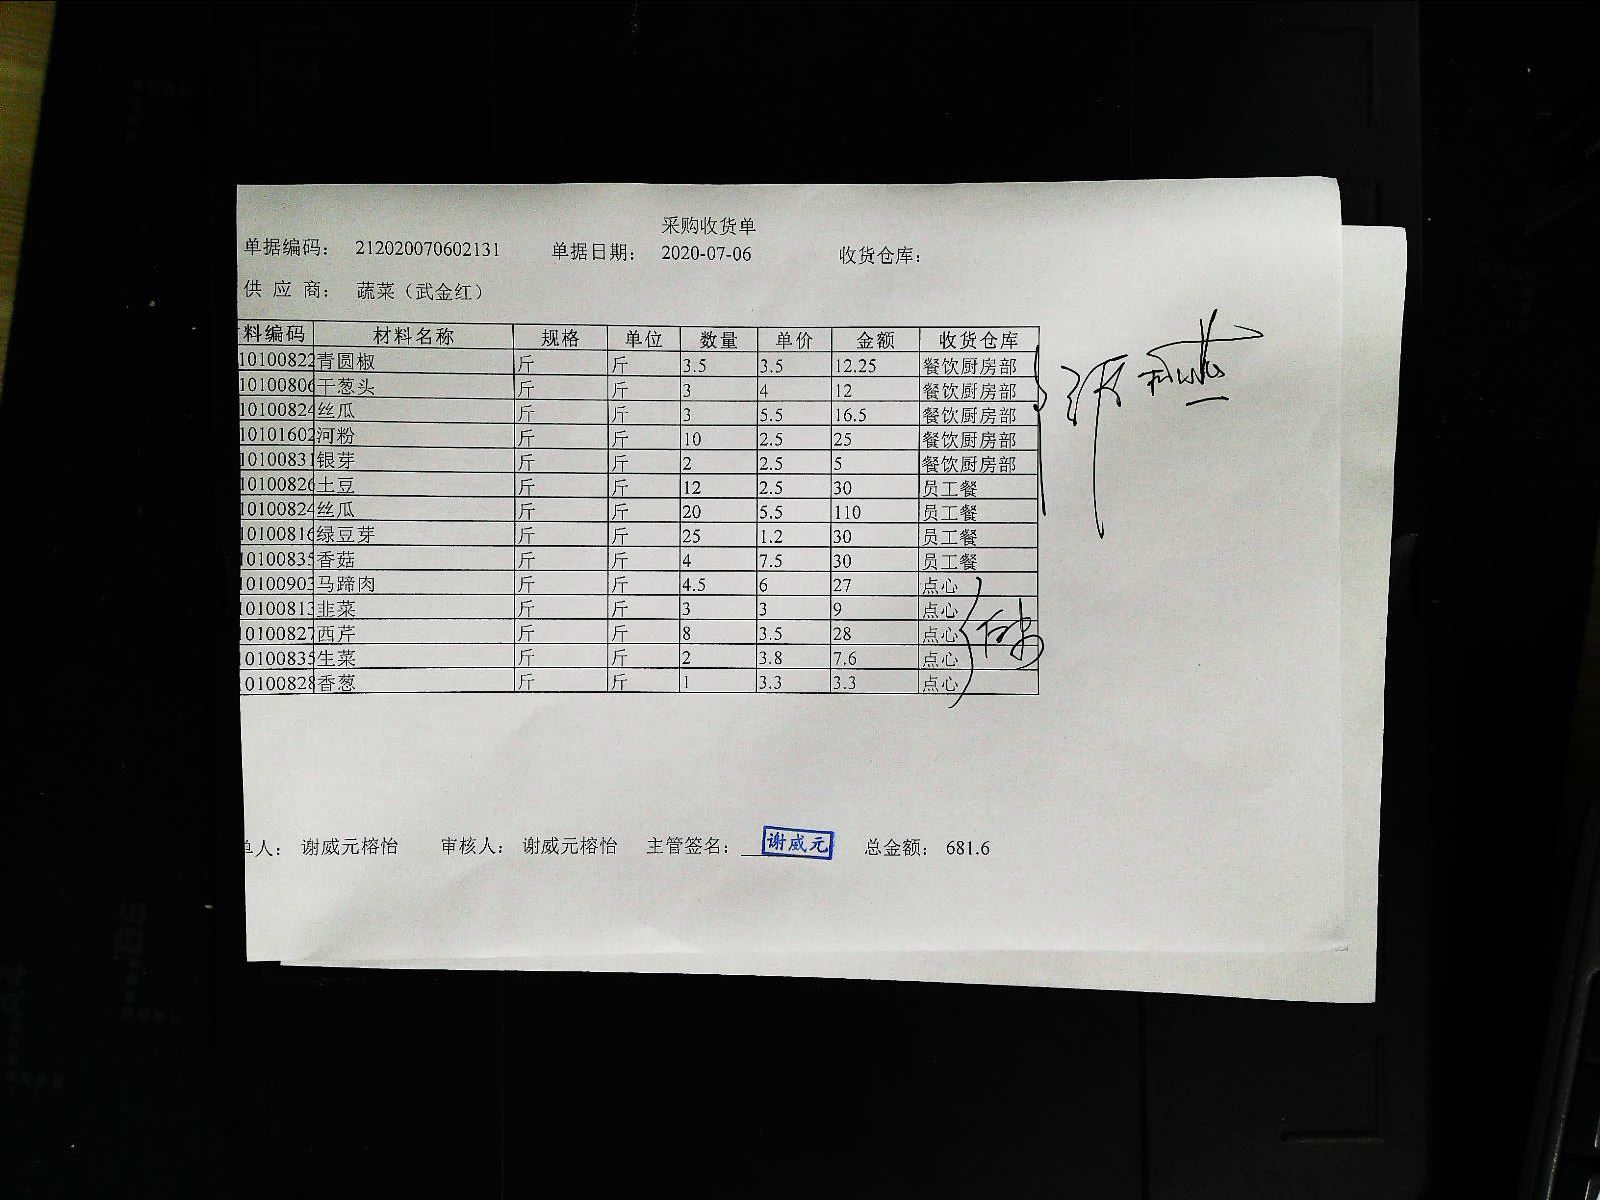 采购收货单
单据编码： 212020070602131 单据日期： 2020-07-06 收货仓库：
供 应 商： 蔬菜（武金红）
料编码 材料名称 规格 单位 数量 单价 金额 收货仓库
10100822 青圆椒 斤 斤 3.5 3.5 12.25 餐饮厨房部
10100806 干葱头 斤 斤 3 4 12 餐饮厨房部
10100824 丝瓜 斤 斤 3 5.5 16.5 餐饮厨房部
10101602 河粉 斤 斤 10 2.5 25 餐饮厨房部
10100831 银芽 斤 斤 2 2.5 5 餐饮厨房部
10100826 土豆 斤 斤 12 2.5 30 员工餐
10100824 丝瓜 斤 斤 20 5.5 110 员工餐
10100816 绿豆芽 斤 斤 25 1.2 30 员工餐
10100835 香菇 斤 斤 4 7.5 30 员工餐
10100903 马蹄肉 斤 斤 4.5 6 27 点心
10100813 韭菜 斤 斤 3 3 9 点心
10100827 西芹 斤 斤 8 3.5 28 点心
10100835 生菜 斤 斤 2 3.8 7.6 点心
10100828 香葱 斤 斤 1 3.3 3.3 点心
单人： 谢威元榕怡 审核人： 谢威元榕怡 主管签名： 谢威元 总金额： 681.6